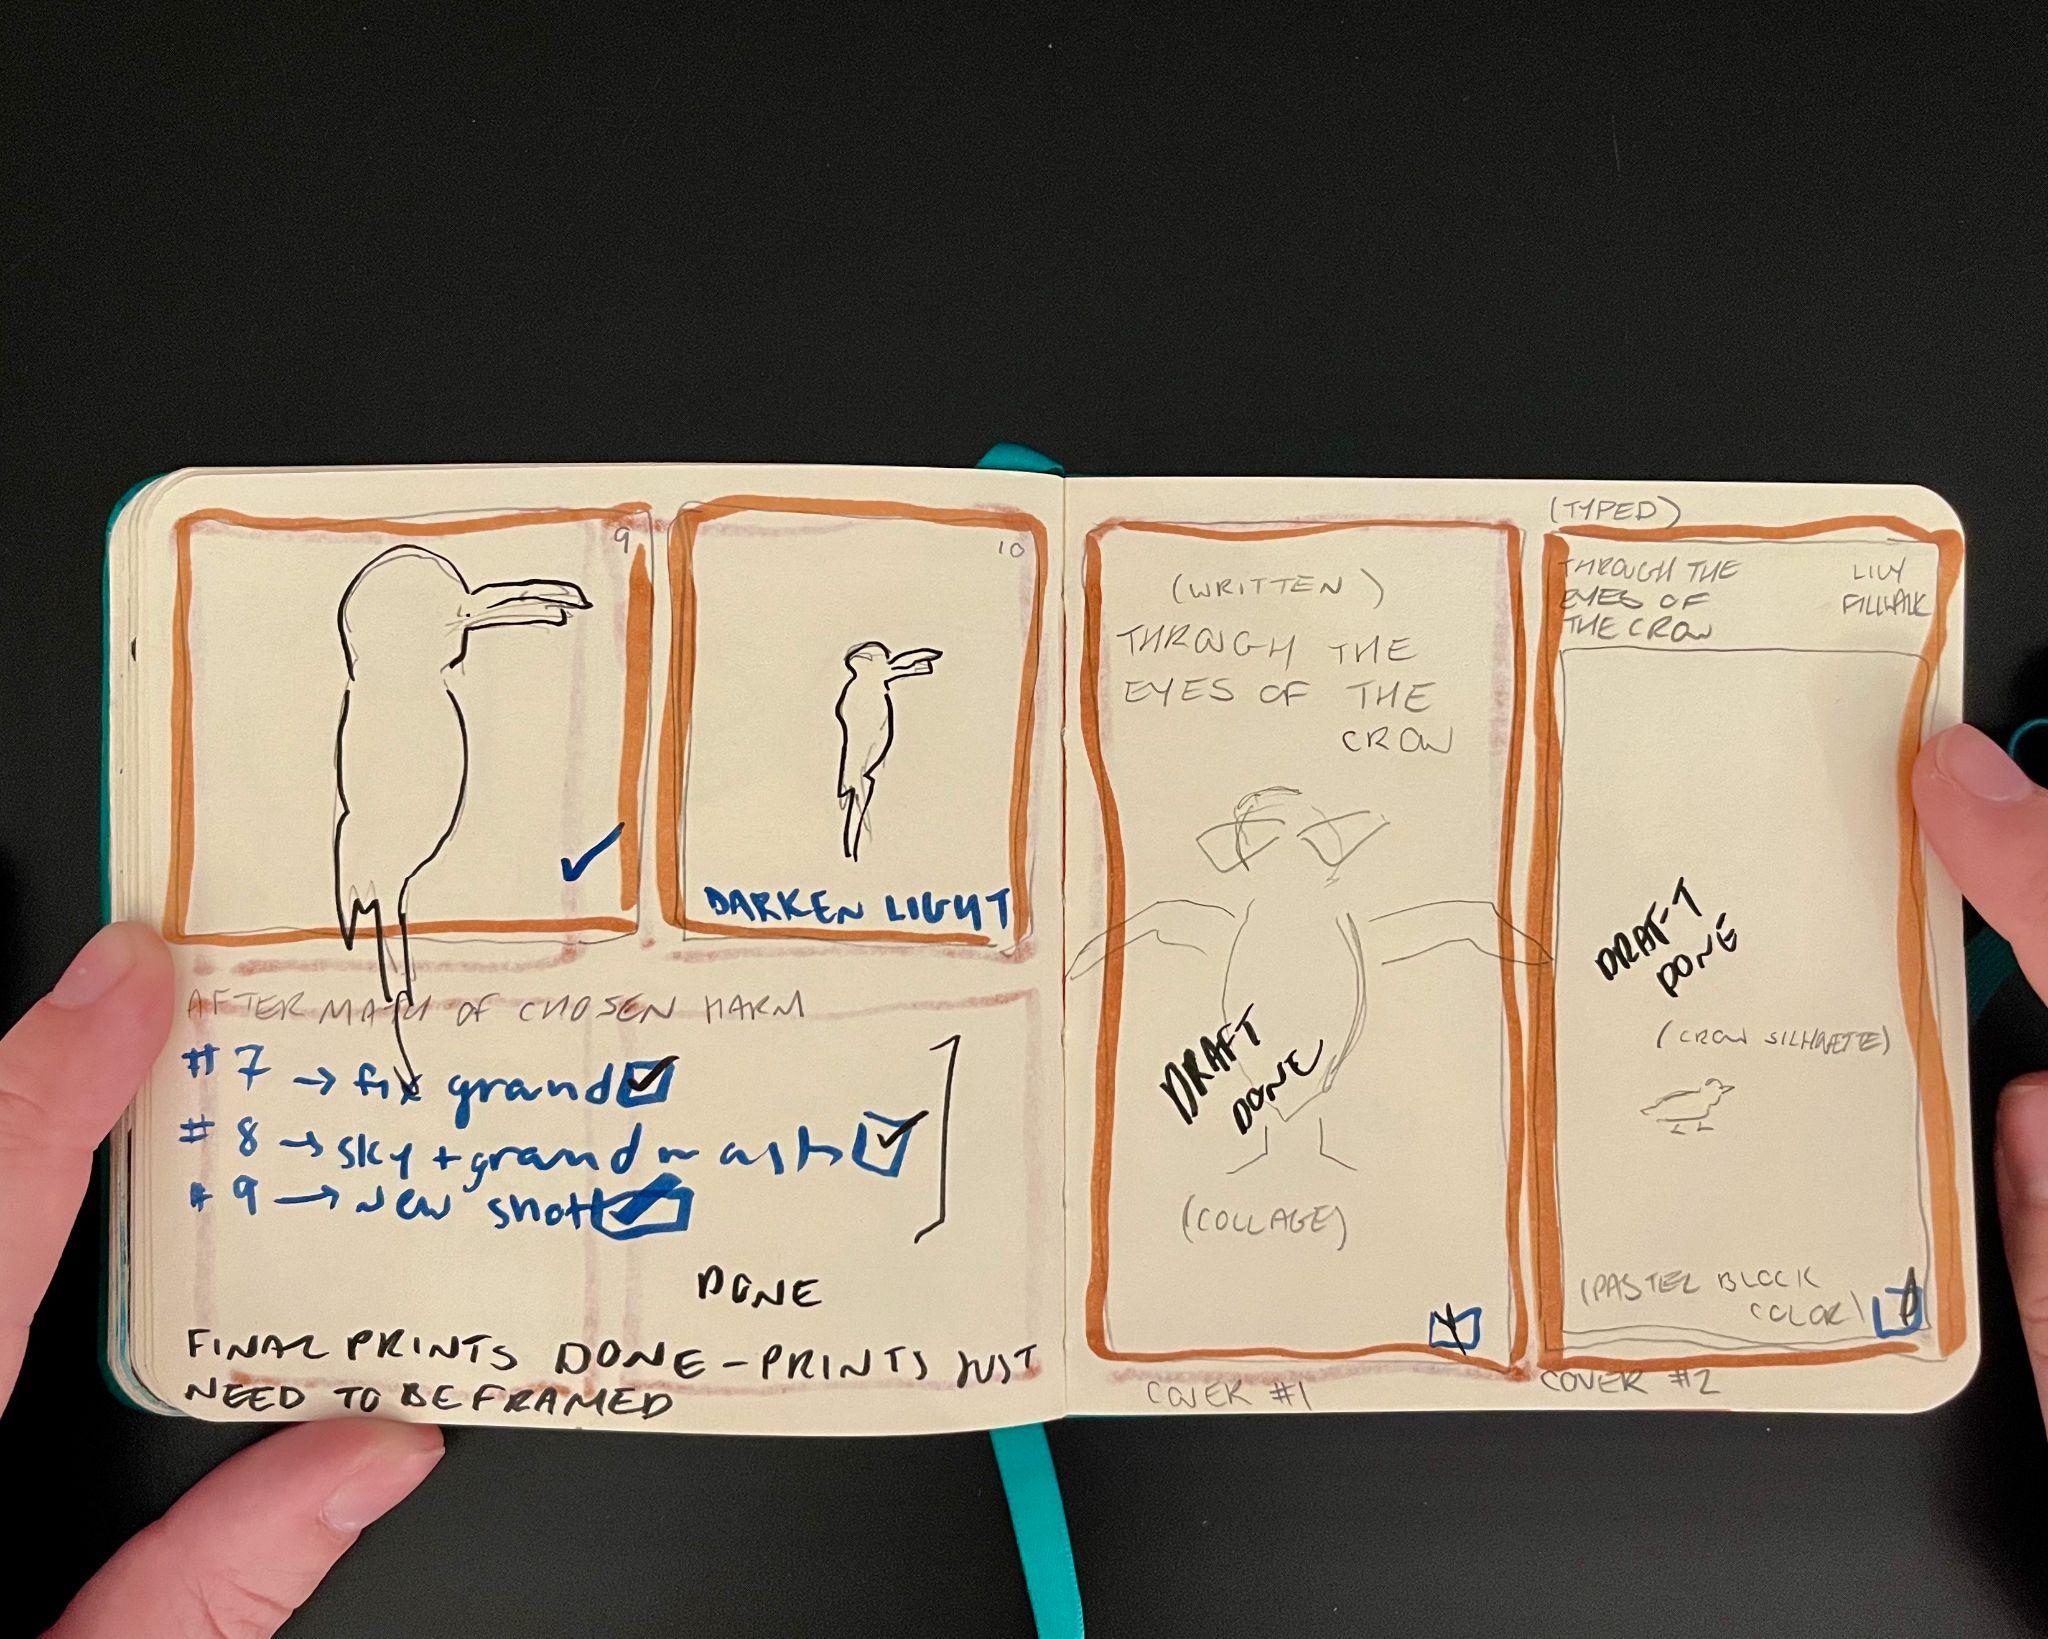 9
10
DARKEN LIGHT
AFTERMATH OF CHOSEN HARM
#7 → fix ground
#8 → sky + ground
#9 → New shot
DONE
FINAL PRINTS DONE - PRINTS JUST
NEED TO BE FRAMED
(WRITTEN)
THROUGH THE
EYES OF THE
CROW
DRAFT
DONE
(COLLAGE)
COVER #1
(TYPED)
THROUGH THE
EYES OF
THE CROW
LILY
DRAFT
DONE
(CROW SILHOUETTE)
(PASTEL BLOCK
COLOR)
COVER #2